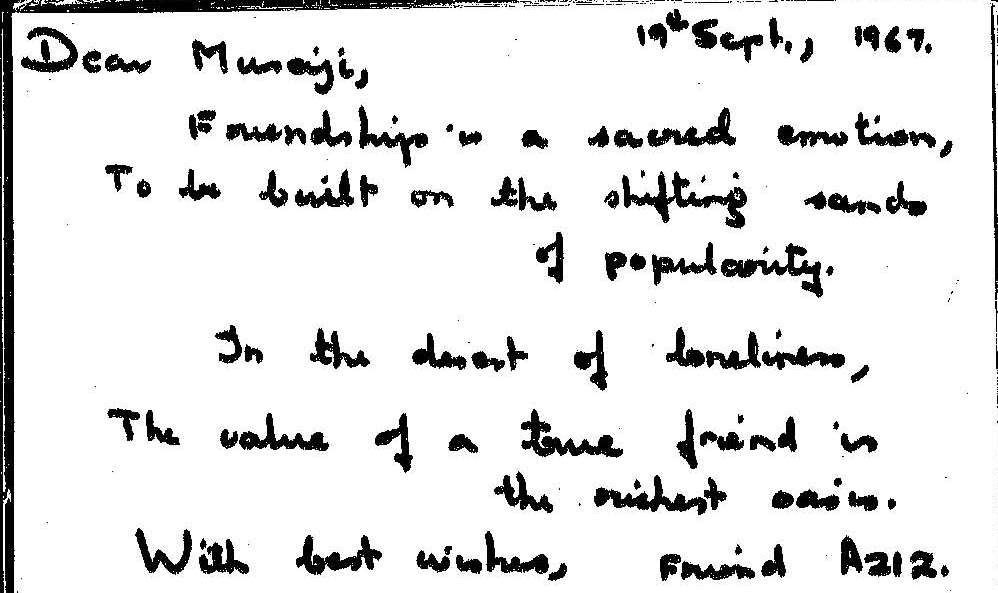 19th Sept., 1967.
Dear Musaji,
Friendship is a sacred emotion,
To be built on the shifting sands
of popularity.
In the desert of loneliness,
The value of a true friend is
the richest oasis.
With best wishes, Friend Aziz.